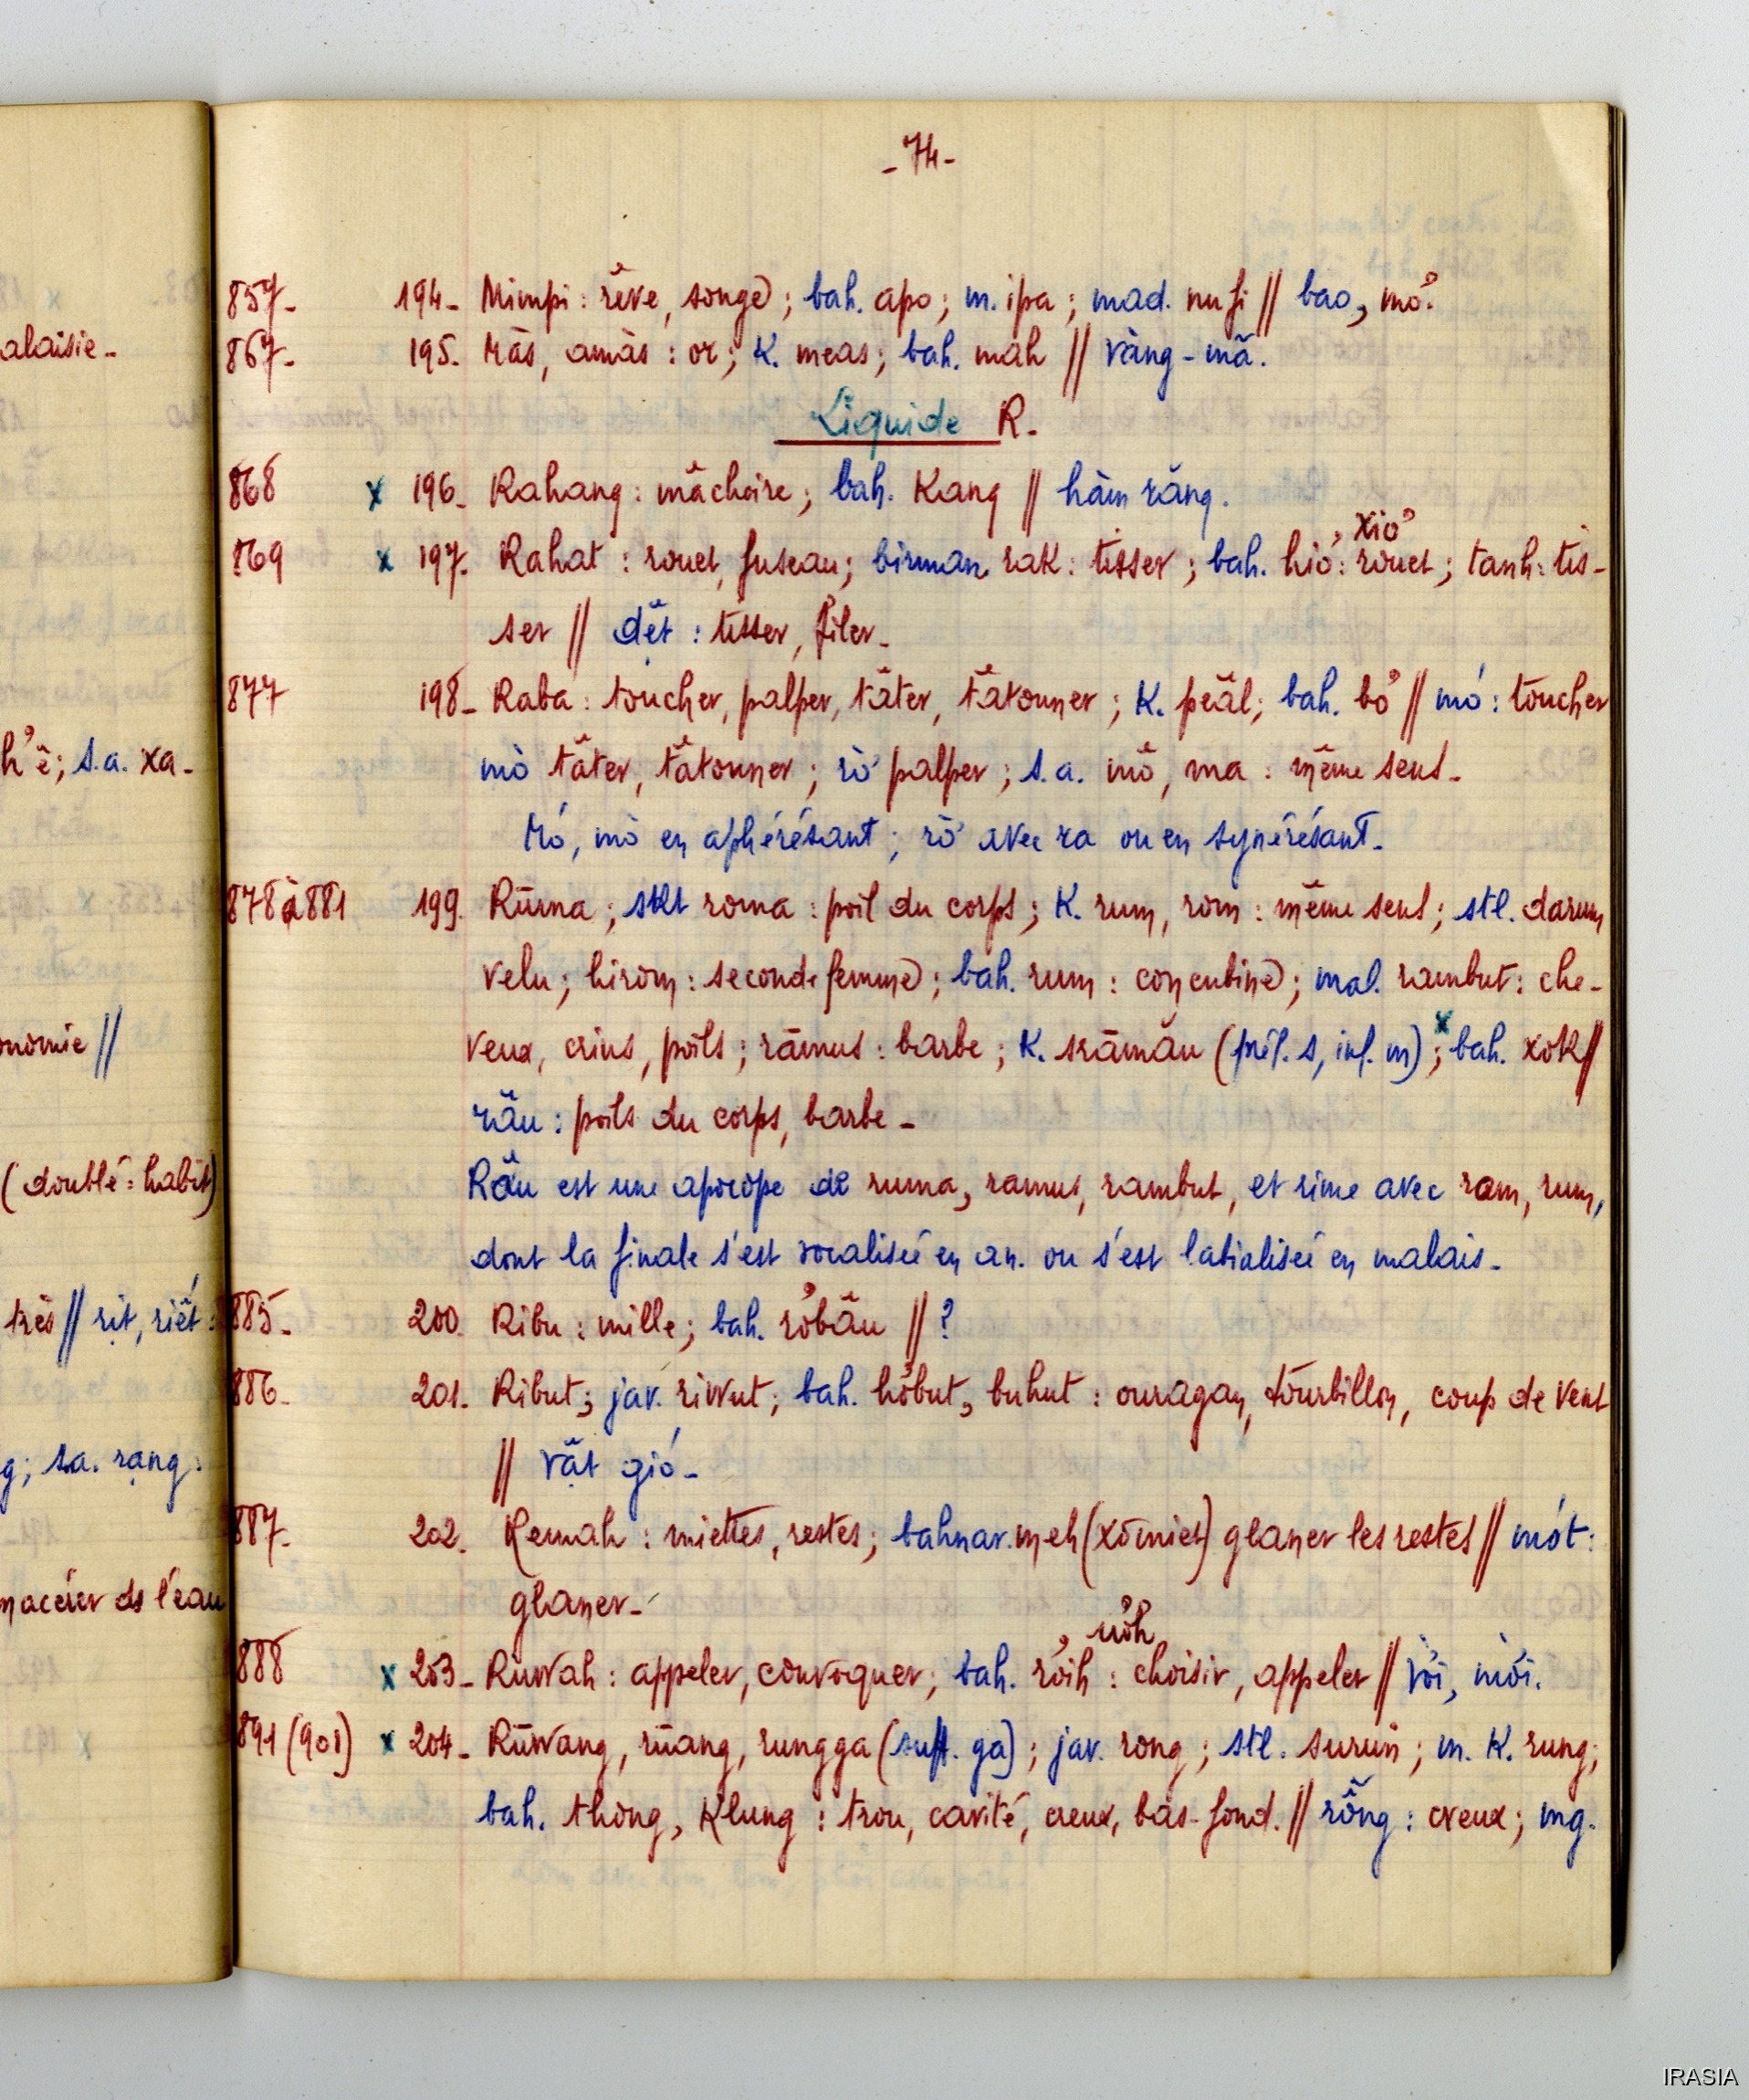 - 74 -
857- 194- Mimpi : rêve, songe ; bah. apo ; m. ipa ; mad. nufi // bao, mơ.
867- 195. Mās, amās : or ; K. meas ; bah. mah // vàng-mã.
Liquide R.
868 x 196_ Rahang : mâchoire ; bah. Kang // hàm răng.
xiơ
869 x 197. Rahat : rouet, fuseau ; birman rak : tisser ; bah. hiơ : rouet ; tanh : tis-
ser // dệt : tisser, filer_
877 198_ Raba : toucher, palper, tâter, tâtonner ; K. peāl ; bah. bơ // mó : toucher
mò tâter, tâtonner ; rờ palper ; s.a. mô, ma : même sens_
Mó, mò en aphérésant ; rờ avec ra ou en synérésant_
878 à 881 199. Rūma ; skt roma : poil du corps ; K. rum, rom : même sens ; stl. darum
velu ; hirom : seconde femme ; bah. rum : concubine ; mal. rambut : che-
veux, crins, poils ; rāmus : barbe ; K. srāmău (préf. s, inf. m) ; x bah. xok //
râu : poils du corps, barbe_
Râu est une apocope de ruma, ramus, rambut, et rime avec ram, rum,
dont la finale s'est vocalisée en an. ou s'est labialisée en malais_
885_ 200. Ribu : mille ; bah. rơbâu // ?
886_ 201. Ribut ; jav. riwut ; bah. hơbut, buhut : ouragan, tourbillon, coup de vent
// vật gió_
887_ 202. Remah : miettes, restes ; bahnar. meh (xơmieh) glaner les restes // mót :
glaner_
rơh
888 x 203_ Ruwah : appeler, convoquer ; bah. rơih : choisir, appeler // vời, mời.
891 (901) x 204_ Rūwang, rūang, rungga (suff. ga) ; jav. rong ; stl. surun ; m. K. rung ;
bah. thong, Klung : trou, cavité, creux, bas-fond. // rỗng : creux ; mg.
alaisie_
h'ê ; s.a. xa-
onomie //
(doublé : habit)
très // rịt, riết :
g ; s.a. rạng.
macérer ds l'eau
IRASIA